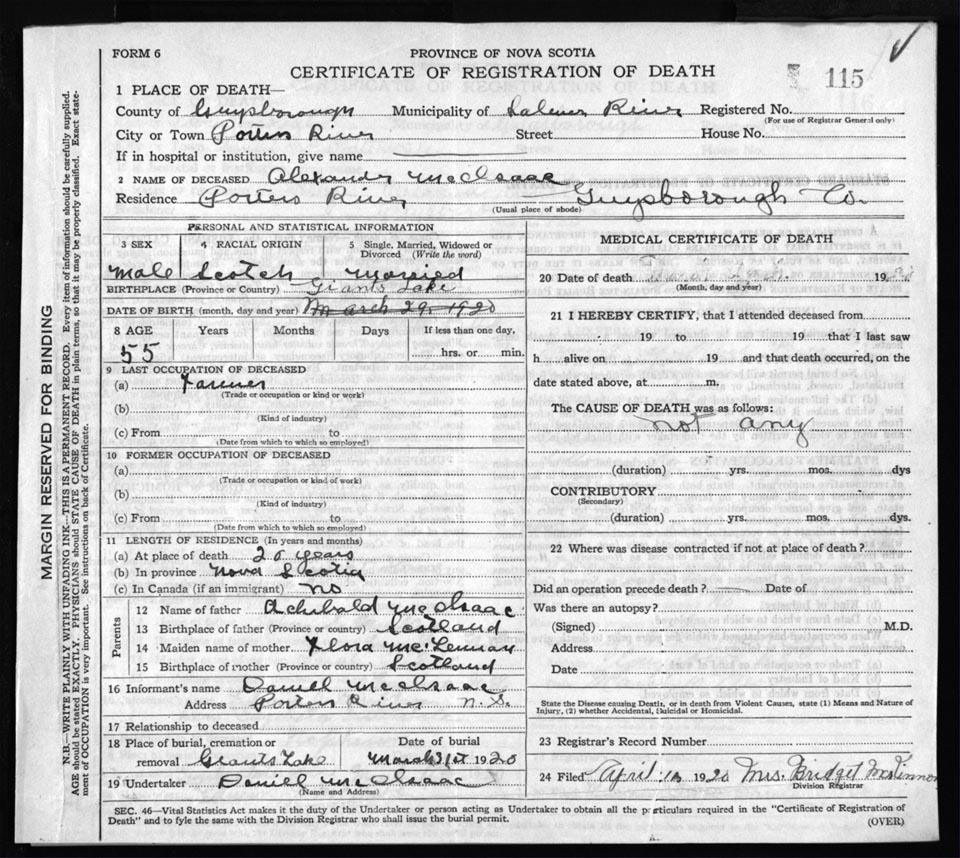 FORM 6
PROVINCE OF NOVA SCOTIA
CERTIFICATE OF REGISTRATION OF DEATH
115
1 PLACE OF DEATH—
County of Guysborough Municipality of Salmon River Registered No.
(For use of Registrar General only)
City or Town Porters River Street House No.
If in hospital or institution, give name
2 NAME OF DECEASED Alexander McIsaac
Residence Porters River Guysborough Co.
(Usual place of abode)
PERSONAL AND STATISTICAL INFORMATION
3 SEX 4 RACIAL ORIGIN 5 Single, Married, Widowed or Divorced (Write the word)
Male Scotch Married
BIRTHPLACE (Province or Country) Grants Lake
DATE OF BIRTH (month, day and year) March 29, 1920
8 AGE Years Months Days If less than one day,
55 hrs. or min.
9 LAST OCCUPATION OF DECEASED
(a) Farmer
(Trade or occupation or kind or work)
(b)
(Kind of industry)
(c) From to
(Date from which to which so employed)
10 FORMER OCCUPATION OF DECEASED
(a)
(Trade or occupation or kind of work)
(b)
(Kind of industry)
(c) From to
(Date from which to which so employed)
11 LENGTH OF RESIDENCE (In years and months)
(a) At place of death years
(b) In province Nova Scotia
(c) In Canada (if an immigrant) no
Parents
12 Name of father Archibald McIsaac
13 Birthplace of father (Province or country) Scotland
14 Maiden name of mother Flora McLennan
15 Birthplace of mother (Province or country) Scotland
16 Informant's name Daniel McIsaac
Address Porters River N.S.
17 Relationship to deceased
18 Place of burial, cremation or Date of burial
removal Grants Lake March 31st 1920
19 Undertaker Daniel McIsaac
(Name and Address)
MEDICAL CERTIFICATE OF DEATH
20 Date of death 19
(Month, day and year)
21 I HEREBY CERTIFY, that I attended deceased from
19 to 19 that I last saw
h alive on 19 and that death occurred, on the
date stated above, at m.
The CAUSE OF DEATH was as follows:
not any
(duration) yrs. mos. dys
CONTRIBUTORY
(Secondary)
(duration) yrs. mos. dys.
22 Where was disease contracted if not at place of death?
Did an operation precede death? Date of
Was there an autopsy?
(Signed) M.D.
Address
Date
State the Disease causing Death, or in death from Violent Causes, state (1) Means and Nature of
Injury, (2) whether Accidental, Suicidal or Homicidal.
23 Registrar's Record Number
24 Filed April 1920 Mrs. Bridget McKinnon
Division Registrar
SEC. 46—Vital Statistics Act makes it the duty of the Undertaker or person acting as Undertaker to obtain all the particulars required in the "Certificate of Registration of
Death" and to fyle the same with the Division Registrar who shall issue the burial permit.
(OVER)
MARGIN RESERVED FOR BINDING
N.B.—WRITE PLAINLY WITH UNFADING INK—THIS IS A PERMANENT RECORD. Every item of information should be carefully supplied.
AGE should be stated EXACTLY. PHYSICIANS should STATE CAUSE OF DEATH in plain terms, so that it may be properly classified. Exact statement of OCCUPATION is very important. See instructions on back of Certificate.